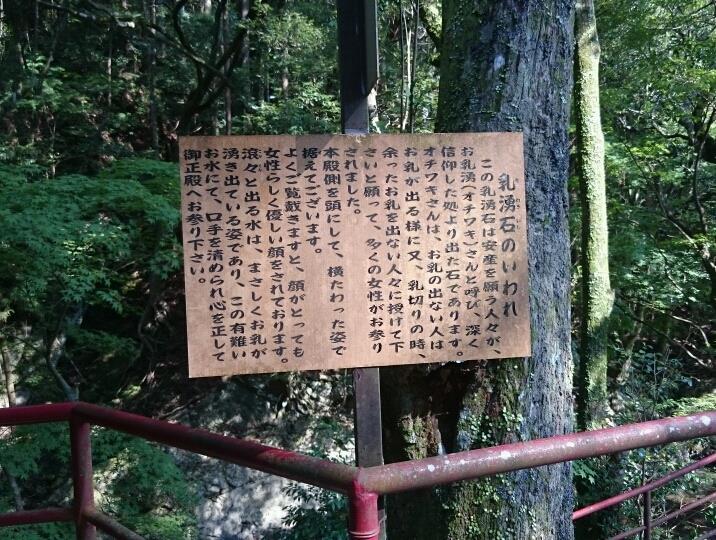 乳湧石のいわれ
この乳湧石は安産を願う人々が、
お乳湧(オチワキ)さんと呼び、深く
信仰した処より出た石であります。
オチワキさんは、お乳の出ない人は
お乳が出る様に又、乳切りの時、
余ったお乳を出ない人々に授けて下
さいと願って、多くの女性がお参り
されました。
本殿側を頭にして、横たわった姿で
据えてございます。
よくご覧戴きますと、顔がとっても
女性らしく優しい顔をされております。
滾々と出る水は、まさしくお乳が
湧き出ている姿であり、この有難い
お水にて、口手を清められ心を正して
御正殿へお参り下さい。